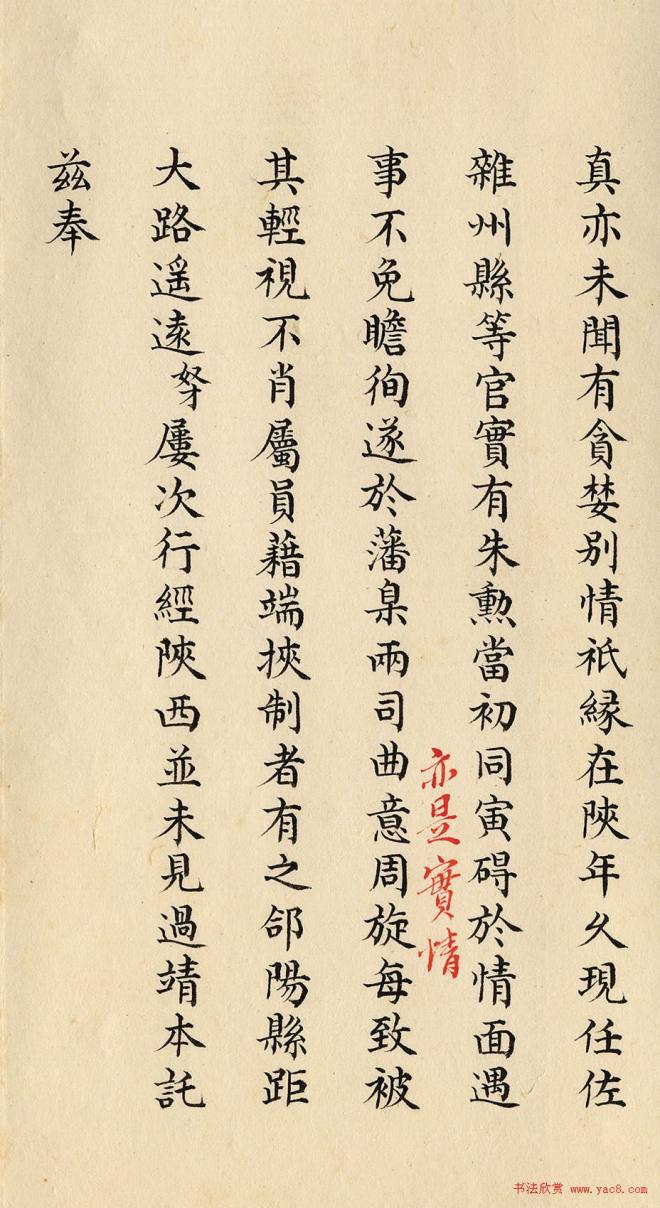 真亦未聞有貪婪别情祇緣在陝年久現任佐
雜州縣等官實有朱勳當初同寅碍於情面遇
亦是實情
事不免瞻徇遂於藩臬兩司曲意周旋每致被
其輕視不肖屬員藉端挾制者有之郃陽縣距
大路遥遠努屢次行經陝西並未見過靖本託
兹奉
书法欣赏 www.yac8.com